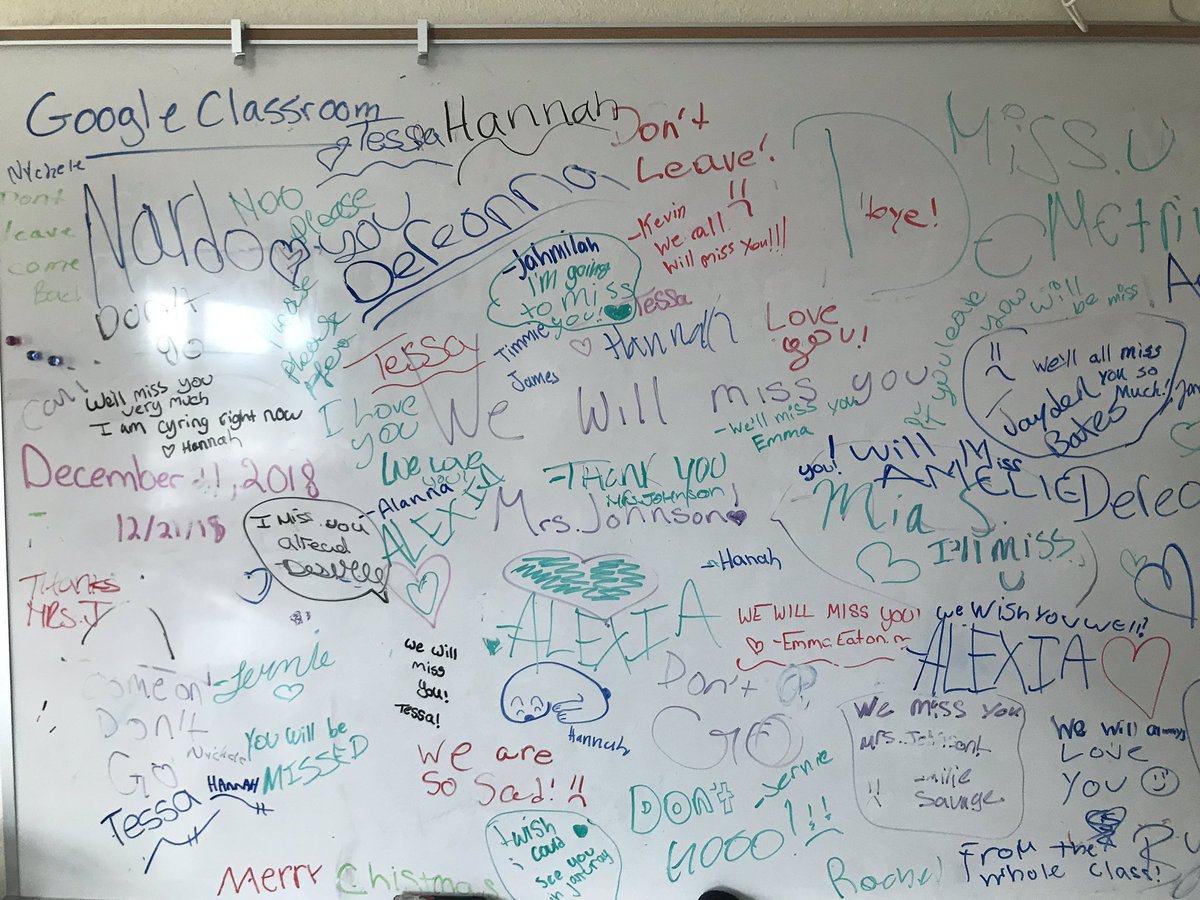 Google Classroom
Tessa
Hannah
Don't
Leave!
Miss u
Nychele
Dont
leave
come
Back
Nardo
Noo
please
you
Dereonna
-Kevin
We all
will miss you!!!
'bye!
Don't
go
please
-Jahmilah
I'm going
to miss
you!
Tessa
Timmie
James
Hannah
Love
you!
Tessa
if you leave
you will
be miss
We'll all miss
you so
much!
Jayden
Bates
Well miss you
very much
I am cyring right now
Hannah
I love
you
We Will miss you
-We'll miss you
Emma
December 11, 2018
12/21/18
We love
you!
-Alanna
ALEXIA
-THANK YOU
MRS.JOHNSON!
Mrs. Johnson
you! will
Miss
AMELIE
Mia S.
I'll miss
u
I miss you
alread
-Hanah
THANKS
MRS.J
ALEXIA
WE WILL MISS YOU!
-Emma Eaton.m
we wish you well!
ALEXIA
we will
miss
you!
Tessa!
come on!
-Jernie
Don't
Go
Nychele
You will be
MISSED
HANNAH
Tessa
Hannah
Don't
Go
we are
so sad!
We miss you
mrs. Johnson!
Savage
We will always
LOVE
YOU
DON'T
-Jernie
gooo!!!
I wish
i could
see you
in
Merry Chistmas
Rachel
From the
whole class!